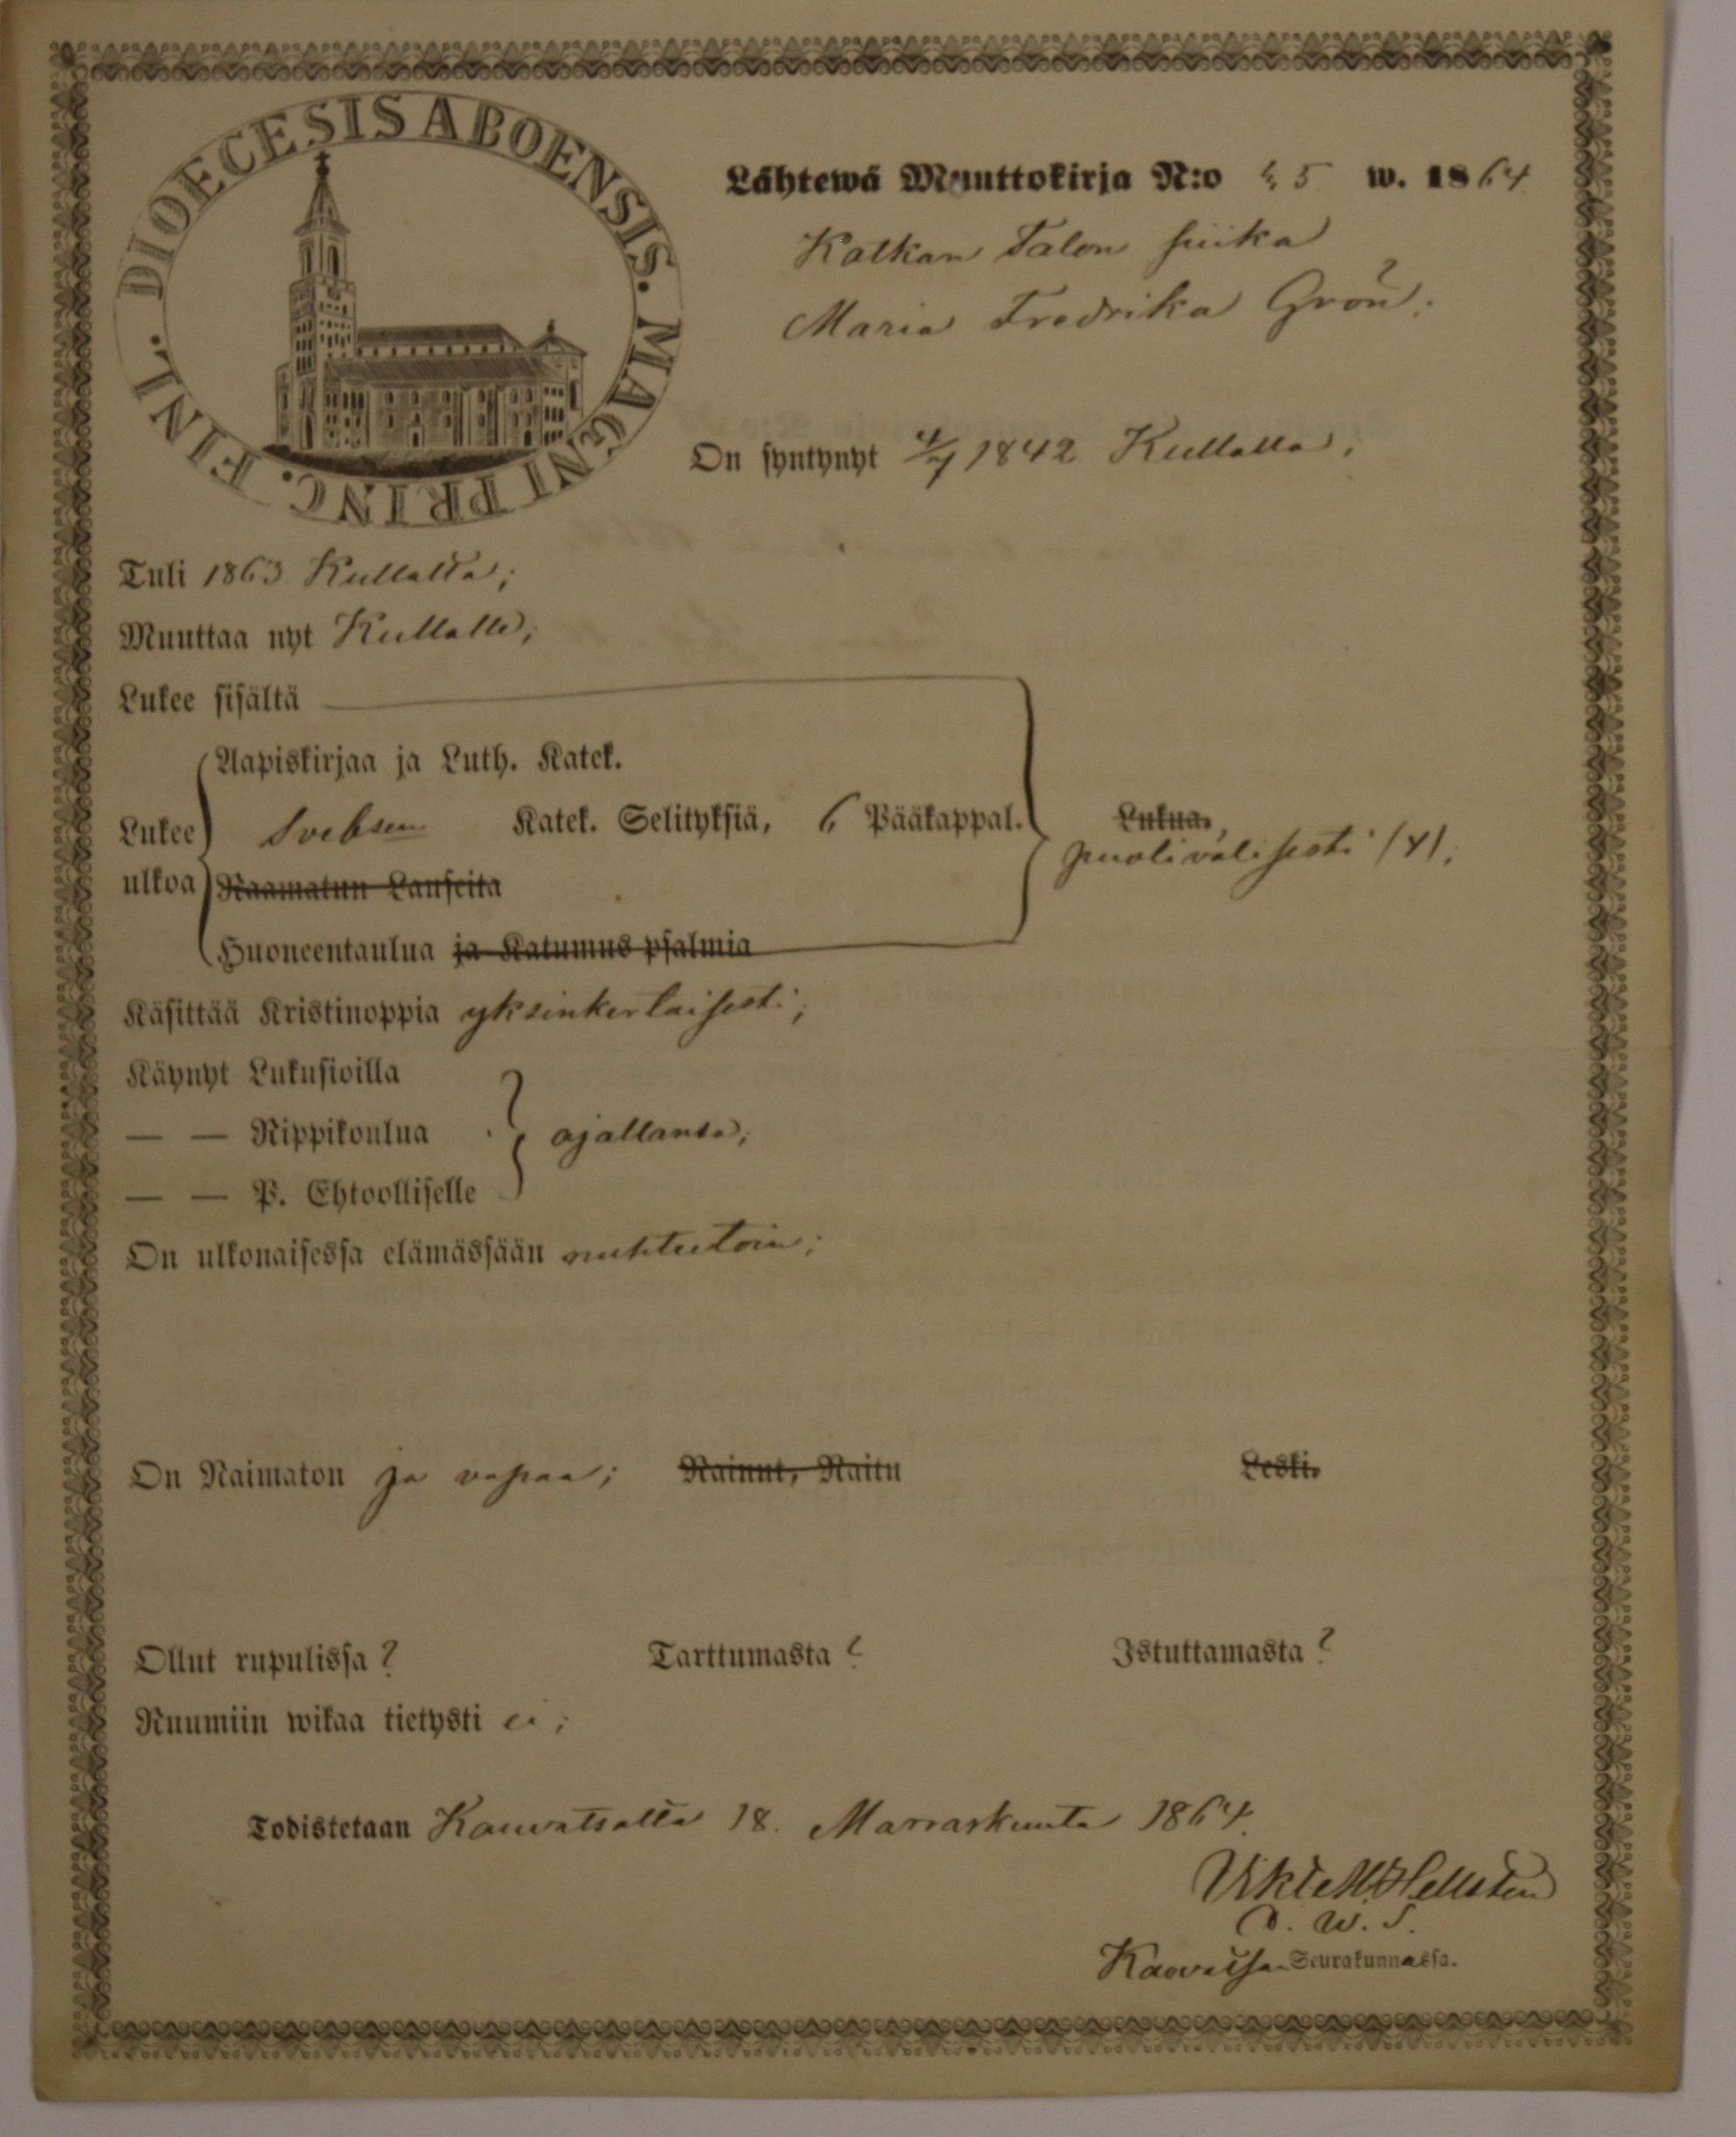 DIOECESIS ABOENSIS. MAGNI PRINC. FINL.
Lähtewä Muuttokirja N:o 45 w. 1864
Katkan Talon piika
Maria Fredrika Grön.
On syntynyt 4/7 1842 Kullalla,
Tuli 1863 Kullalta;
Muuttaa nyt Kullalle;
Lukee sisältä
Aapiskirjaa ja Luth. Katek.
Lukee ulkoa Svebsen Katek. Selityksiä, 6 Pääkappal. Lukua.
puolivälisesti
Raamatun Lauseita
Huoneentaulua ja Katumus psalmia
Käsittää Kristinoppia yksinkertaisesti;
Käynyt Lukusioilla
— — Rippikoulua ajallansa;
— — P. Ehtoolliselle
On ulkonaisessa elämässään nuhteetoin;
On Naimaton ja vapaa; Nainut, Naitu Leski.
Ollut rupulissa? Tarttumasta? Istuttamasta?
Ruumiin wikaa tietysti ei;
Todistetaan Kauvatsalla 18. Marraskuuta 1864.
Hellsten
v. W. S.
Kauvatsan Seurakunnassa.